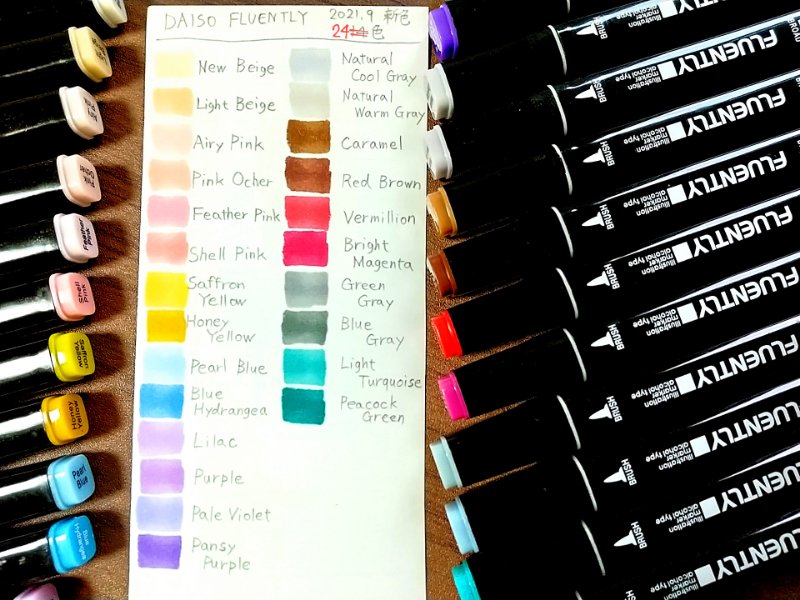 DAISO FLUENTLY 2021.9 新色
24色
New Beige
Light Beige
Airy Pink
Pink Ocher
Feather Pink
Shell Pink
Saffron
Yellow
Honey
Yellow
Pearl Blue
Blue
Hydrangea
Lilac
Purple
Pale Violet
Pansy
Purple
Natural
Cool Gray
Natural
Warm Gray
Caramel
Red Brown
Vermillion
Bright
Magenta
Green
Gray
Blue
Gray
Light
Turquoise
Peacock
Green
Airy
Pink
Pink
Ocher
Feather
Pink
Shell
Pink
Saffron
Yellow
Honey
Yellow
Pearl
Blue
Blue
Hydrangea
BRUSH
illustration
marker
alcohol type
FLUENTLY
BRUSH
illustration
marker
alcohol type
FLUENTLY
BRUSH
illustration
marker
alcohol type
FLUENTLY
BRUSH
illustration
marker
alcohol type
FLUENTLY
BRUSH
illustration
marker
alcohol type
FLUENTLY
BRUSH
illustration
marker
alcohol type
FLUENTLY
BRUSH
illustration
marker
alcohol type
FLUENTLY
BRUSH
illustration
marker
alcohol type
FLUENTLY
BRUSH
illustration
marker
alcohol type
FLUENTLY